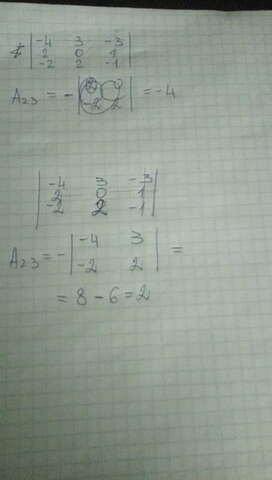 | -4 3 -3 |
| 2 0 1 |
| -2 2 -1 |
A₂₃ = - | 2 0 | = -4
| -2 2 |
| -4 3 -3 |
| 2 0 1 |
| -2 2 -1 |
A₂₃ = - | -4 3 | =
| -2 2 |
= 8 - 6 = 2